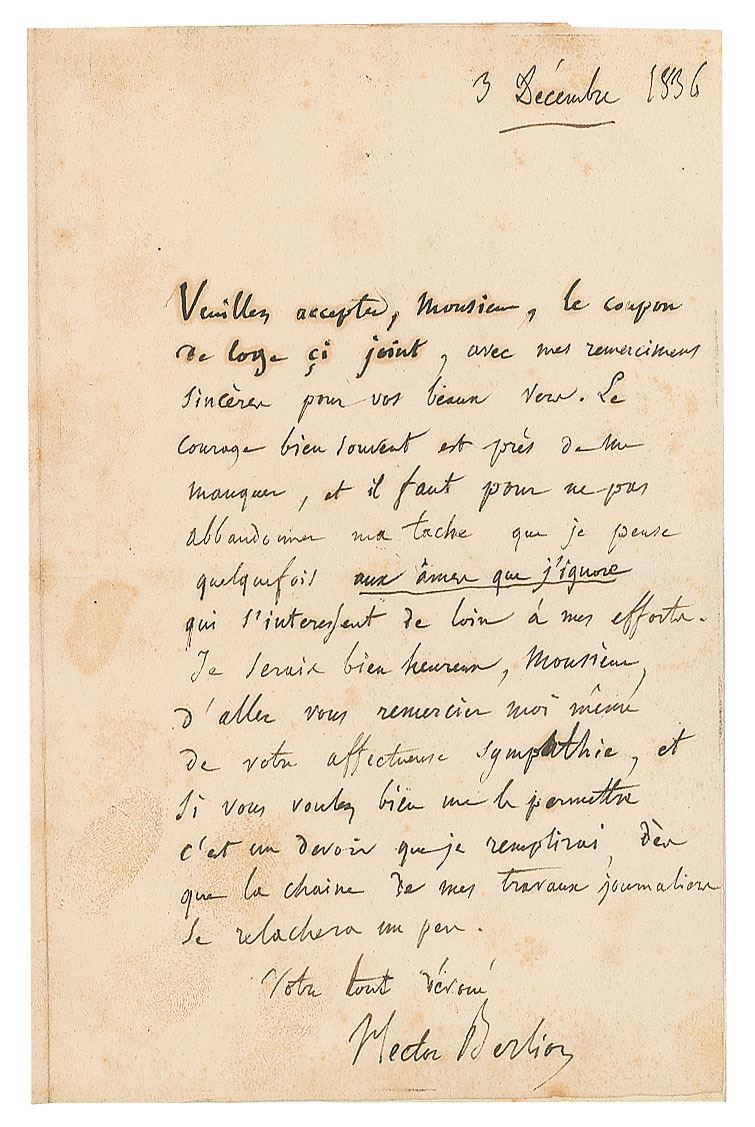 3 Décembre 1836
Veuillez accepter, Monsieur, le coupon
de loge çi joint, avec mes remercimens
sincères pour vos beaux vers. Le
courage bien souvent est près de me
manquer, et il faut pour ne pas
abbandonner ma tache que je pense
quelquefois aux âmes que j'ignore
qui s'interessent de loin à mes efforts.
Je serais bien heureux, Monsieur,
d'aller vous remercier moi même
de votre affectueuse sympathie, et
si vous voulez bien me le permettre
c'est un devoir que je remplirai, dès
que la chaine de mes travaux journaliers
se relachera un peu.
Votre tout dévoué
Hector Berlioz